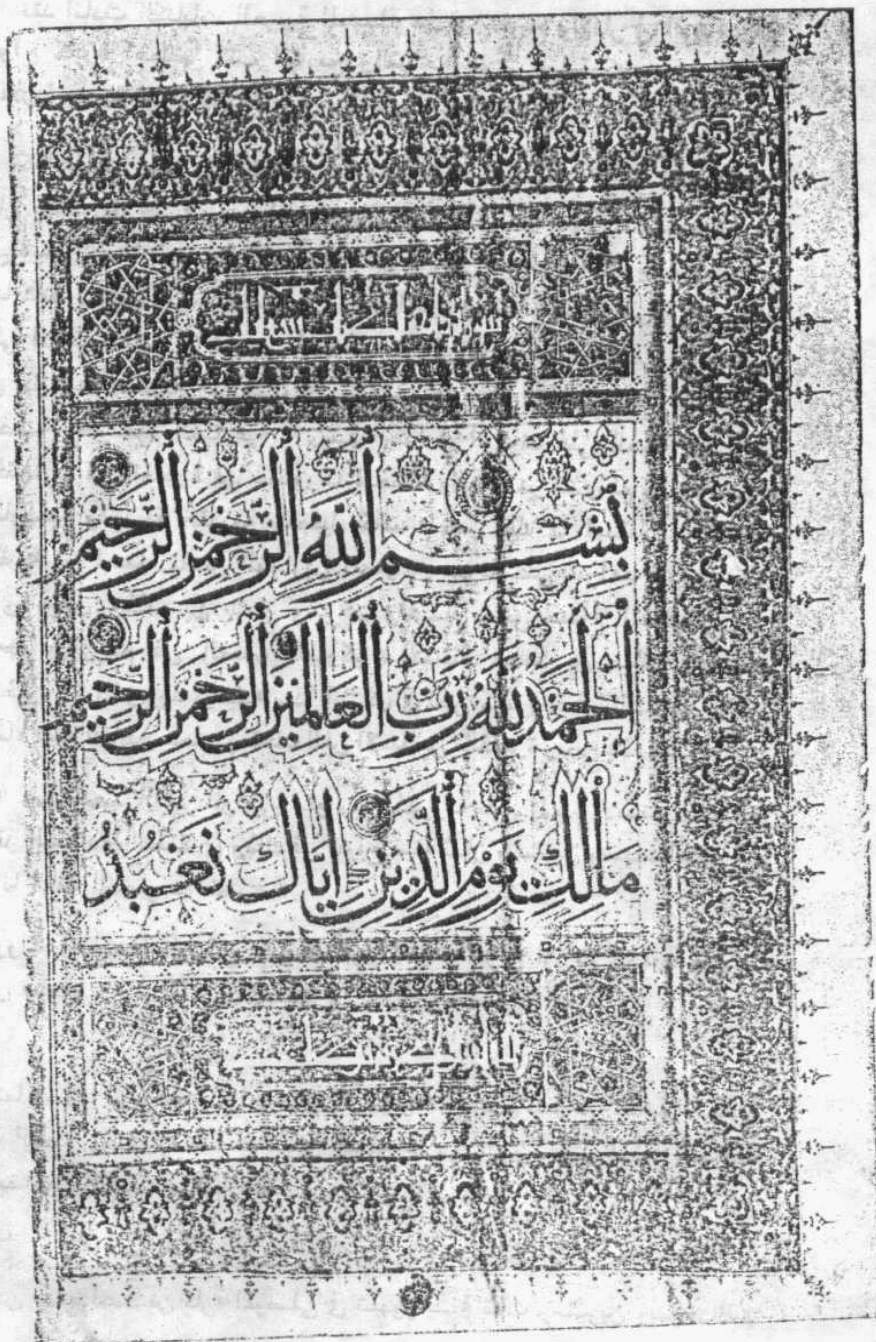 بِسْمِ اَللّٰهِ اَلرَّحْمٰنِ اَلرَّحِيْمِ
اَلْحَمْدُ لِلّٰهِ رَبِّ اَلْعٰالَمِيْنَ اَلرَّحْمٰنِ اَلرَّحِيْمِ
مٰالِكِ يَوْمِ اَلدِّيْنِ اِيَّاكَ نَعْبُدُ